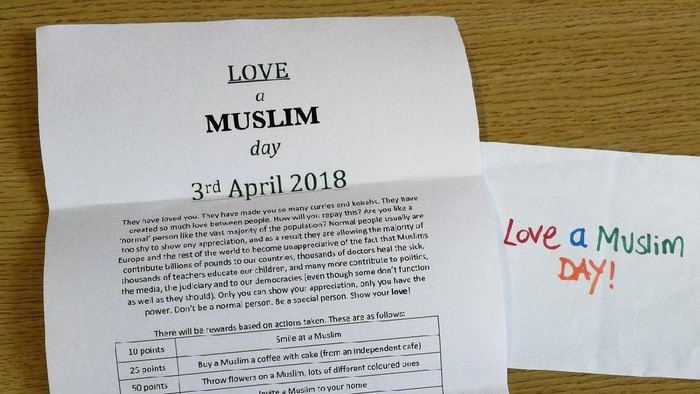 LOVE
a
MUSLIM
day
3rd April 2018
They have loved you. They have made you so many curries and kebabs. They have
created so much love between people. How will you repay this? Are you like a
'normal' person like the vast majority of the population? Normal people usually are
too shy to show any appreciation, and as a result they are allowing the majority of
Europe and the rest of the world to become unappreciative of the fact that Muslims
contribute billions of pounds to our countries, thousands of doctors heal the sick,
thousands of teachers educate our children, and many more contribute to politics,
the media, the judiciary and to our democracies (even though some don't function
as well as they should). Only you can show your appreciation, only you have the
power. Don't be a normal person. Be a special person. Show your love!
There will be rewards based on actions taken. These are as follows:
10 points Smile at a Muslim
25 points Buy a Muslim a coffee with cake (from an independent cafe)
50 points Throw flowers on a Muslim, lots of different coloured ones
Invite a Muslim to your home
Love a Muslim
DAY!